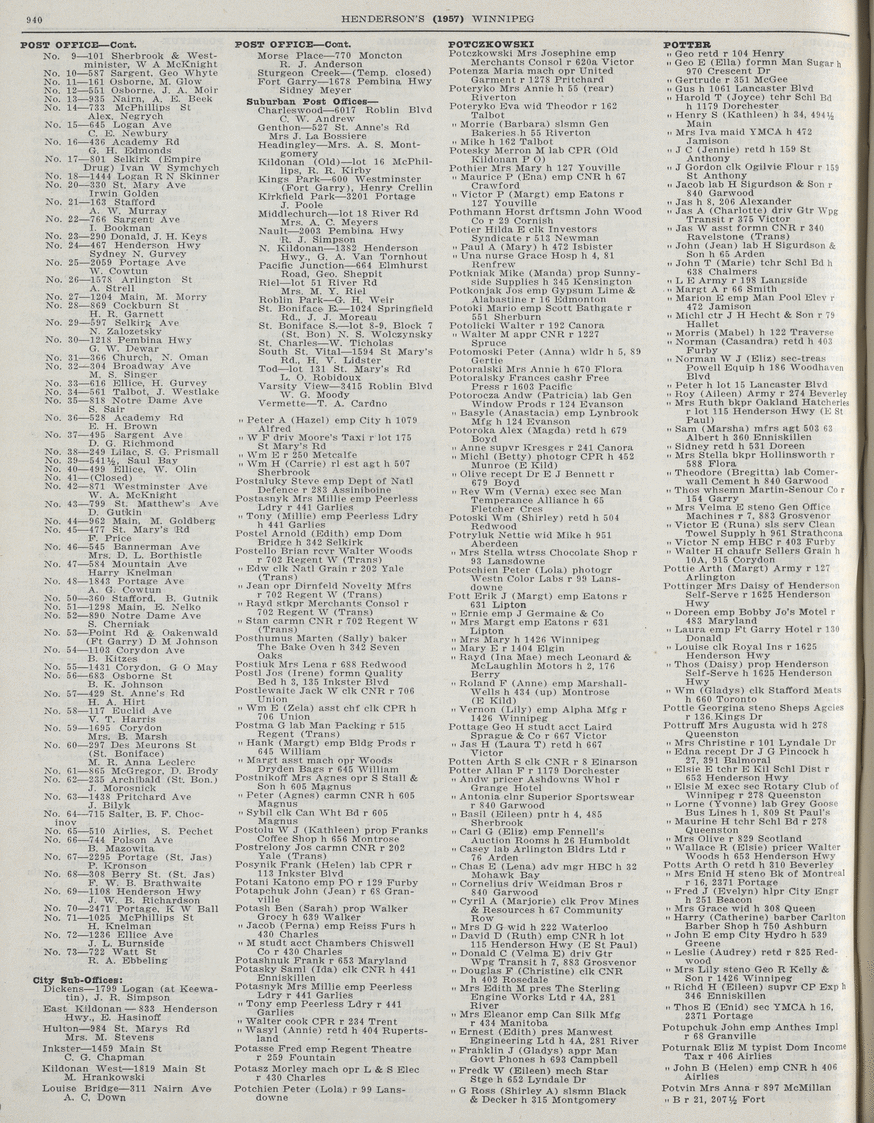 940
HENDERSON'S (1957) WINNIPEG
POST OFFICE—Cont.
No. 9—101 Sherbrook & West-
minister, W A McKnight
No. 10—587 Sargent, Geo Whyte
No. 11—161 Osborne, M. Glow
No. 12—551 Osborne, J. A. Moir
No. 13—935 Nairn, A. E. Beek
No. 14—733 McPhillips St
Alex. Negrych
No. 15—645 Logan Ave
C. E. Newbury
No. 16—436 Academy Rd
G. H. Edmonds
No. 17—801 Selkirk (Empire
Drug) Ivan W Symchych
No. 18—1444 Logan R N Skinner
No. 20—330 St. Mary Ave
Irwin Golden
No. 21—163 Stafford
A. W. Murray
No. 22—766 Sargent Ave
I. Bookman
No. 23—290 Donald, J. H. Keys
No. 24—467 Henderson Hwy
Sydney N. Gurvey
No. 25—2059 Portage Ave
W. Cowtun
No. 26—1578 Arlington St
A. Strell
No. 27—1204 Main, M. Morry
No. 28—869 Cockburn St
H. R. Garnett
No. 29—597 Selkirk Ave
N. Zalozetsky
No. 30—1218 Pembina Hwy
G. W. Dewar
No. 31—366 Church, N. Oman
No. 32—304 Broadway Ave
M. S. Singer
No. 33—616 Ellice, H. Gurvey
No. 34—561 Talbot, J. Westlake
No. 35—818 Notre Dame Ave
S. Sair
No. 36—528 Academy Rd
E. H. Brown
No. 37—495 Sargent Ave
D. G. Richmond
No. 38—249 Lilac, S. G. Prismall
No. 39—541½, Saul Bay
No. 40—499 Ellice, W. Olin
No. 41—(Closed)
No. 42—871 Westminster Ave
W. A. McKnight
No. 43—799 St. Matthew's Ave
D. Gutkin
No. 44—962 Main, M. Goldberg
No. 45—477 St. Mary's Rd
F. Price
No. 46—545 Bannerman Ave
Mrs. D. L. Borthistle
No. 47—584 Mountain Ave
Harry Knelman
No. 48—1843 Portage Ave
A. G. Cowtun
No. 50—360 Stafford, B. Gutnik
No. 51—1298 Main, E. Nelko
No. 52—890 Notre Dame Ave
S. Cherniak
No. 53—Point Rd & Oakenwald
(Ft Garry) D M Johnson
No. 54—1103 Corydon Ave
B. Kitzes
No. 55—1431 Corydon, G O May
No. 56—683 Osborne St
B. K. Johnson
No. 57—429 St. Anne's Rd
H. A. Hirt
No. 58—117 Euclid Ave
V. T. Harris
No. 59—1695 Corydon
Mrs. B. Marsh
No. 60—297 Des Meurons St
(St. Boniface)
M. R. Anna Leclerc
No. 61—865 McGregor, D. Brody
No. 62—235 Archibald (St. Bon.)
J. Morosnick
No. 63—1438 Pritchard Ave
J. Bilyk
No. 64—715 Salter, B. F. Choc-
inov
No. 65—510 Airlies, S. Pechet
No. 66—744 Polson Ave
B. Mazowita
No. 67—2295 Portage (St. Jas)
P. Kronson
No. 68—308 Berry St. (St. Jas)
F. W. B. Brathwaite
No. 69—1108 Henderson Hwy
J. W. B. Richardson
No. 70—2471 Portage, K W Ball
No. 71—1025 McPhillips St
H. Knelman
No. 72—1236 Ellice Ave
J. L. Burnside
No. 73—722 Watt St
R. A. Ebbeling
City Sub-Offices:
Dickens—1799 Logan (at Keewa-
tin), J. R. Simpson
East Kildonan—833 Henderson
Hwy., E. Hasinoff
Hulton—984 St. Marys Rd
Mrs. M. Stevens
Inkster—1459 Main St
C. G. Chapman
Kildonan West—1819 Main St
M. Hrankowski
Louise Bridge—311 Nairn Ave
A. C. Down
POST OFFICE—Cont.
Morse Place—770 Moncton
R. J. Anderson
Sturgeon Creek—(Temp. closed)
Fort Garry—1678 Pembina Hwy
Sidney Meyer
Suburban Post Offices—
Charleswood—6017 Roblin Blvd
C. W. Andrew
Genthon—527 St. Anne's Rd
Mrs J. La Bossiere
Headingley—Mrs. A. S. Mont-
gomery
Kildonan (Old)—lot 16 McPhil-
lips, R. R. Kirby
Kings Park—600 Westminster
(Fort Garry), Henry Crellin
Kirkfield Park—3201 Portage
J. Poole
Middlechurch—lot 18 River Rd
Mrs. A. C. Meyers
Nault—2003 Pembina Hwy
R. J. Simpson
N. Kildonan—1382 Henderson
Hwy., G. A. Van Tornhout
Pacific Junction—664 Elmhurst
Road, Geo. Sheppit
Riel—lot 51 River Rd
Mrs. M. Y. Riel
Roblin Park—G. H. Weir
St. Boniface E.—1024 Springfield
Rd., J. J. Moreau
St. Boniface S.—lot 8-9, Block 7
(St. Bon) N. S. Wolczynsky
St. Charles—W. Ticholas
South St. Vital—1594 St Mary's
Rd., H. V. Lidster
Tod—lot 131 St. Mary's Rd
L. O. Robidoux
Varsity View—3415 Roblin Blvd
W. G. Moody
Vermette—T. A. Cardno
" Peter A (Hazel) emp City h 1079
Alfred
" W F driv Moore's Taxi r lot 175
St Mary's Rd
" Wm E r 250 Metcalfe
" Wm H (Carrie) rl est agt h 507
Sherbrook
Postaluky Steve emp Dept of Natl
Defence r 283 Assiniboine
Postasnyk Mrs Millie emp Peerless
Ldry r 441 Garlies
" Tony (Millie) emp Peerless Ldry
h 441 Garlies
Postel Arnold (Edith) emp Dom
Bridge h 342 Selkirk
Postello Brian rcvr Walter Woods
r 702 Regent W (Trans)
" Edw clk Natl Grain r 202 Yale
(Trans)
" Jean opr Dirnfeld Novelty Mfrs
r 702 Regent W (Trans)
" Rayd stkpr Merchants Consol r
702 Regent W (Trans)
" Stan carmn CNR r 702 Regent W
(Trans)
Posthumus Marten (Sally) baker
The Bake Oven h 342 Seven
Oaks
Postiuk Mrs Lena r 688 Redwood
Postl Jos (Irene) formn Quality
Bed h 3, 135 Inkster Blvd
Postlewaite Jack W clk CNR r 706
Union
" Wm E (Zela) asst chf clk CPR h
706 Union
Postma G lab Man Packing r 515
Regent (Trans)
" Hank (Margt) emp Bldg Prods r
645 William
" Margt asst mach opr Woods
Dryden Bags r 645 William
Postnikoff Mrs Agnes opr S Stall &
Son h 605 Magnus
" Peter (Agnes) carmn CNR h 605
Magnus
" Sybil clk Can Wht Bd r 605
Magnus
Postolu W J (Kathleen) prop Franks
Coffee Shop h 656 Montrose
Postrelony Jos carmn CNR r 202
Yale (Trans)
Posynik Frank (Helen) lab CPR r
113 Inkster Blvd
Potani Katono emp PO r 129 Furby
Potapchuk John (Jean) r 68 Gran-
ville
Potash Ben (Sarah) prop Walker
Grocy h 639 Walker
" Jacob (Perna) emp Reiss Furs h
430 Charles
" M studt acct Chambers Chiswell
Co r 430 Charles
Potashnuk Frank r 653 Maryland
Potasky Saml (Ida) clk CNR h 441
Enniskillen
Potasnyk Mrs Millie emp Peerless
Ldry r 441 Garlies
" Tony emp Peerless Ldry r 441
Garlies
" Walter cook CPR r 234 Trent
" Wasyl (Annie) retd h 404 Ruperts-
land
Potasse Fred emp Regent Theatre
r 259 Fountain
Potasz Morley mach opr L & S Elec
r 430 Charles
Potchien Peter (Lola) r 99 Lans-
downe
POTCZKOWSKI
Potczkowski Mrs Josephine emp
Merchants Consol r 620a Victor
Potenza Maria mach opr United
Garment r 1278 Pritchard
Poteryko Mrs Annie h 55 (rear)
Riverton
Poteryko Eva wid Theodor r 162
Talbot
" Morrie (Barbara) slsmn Gen
Bakeries h 55 Riverton
" Mike h 162 Talbot
Potesky Merron M lab CPR (Old
Kildonan P O)
Pothier Mrs Mary h 127 Youville
" Maurice P (Ena) emp CNR h 67
Crawford
" Victor P (Margt) emp Eatons r
127 Youville
Pothmann Horst drftsmn John Wood
Co r 29 Cornish
Potier Hilda E clk Investors
Syndicate r 513 Newman
" Paul A (Mary) h 472 Isbister
" Una nurse Grace Hosp h 4, 81
Renfrew
Potkniak Mike (Manda) prop Sunny-
side Supplies h 345 Kensington
Potkonjak Jos emp Gypsum Lime &
Alabastine r 16 Edmonton
Potoki Mario emp Scott Bathgate r
551 Sherburn
Potolicki Walter r 192 Canora
" Walter M appr CNR r 1227
Spruce
Potomoski Peter (Anna) wldr h 5, 89
Gertie
Potoralski Mrs Annie h 670 Flora
Potoralsky Frances cashr Free
Press r 1603 Pacific
Potorocza Andw (Patricia) lab Gen
Window Prods r 124 Evanson
" Basyle (Anastacia) emp Lynbrook
Mfg h 124 Evanson
Potoroka Alex (Magda) retd h 679
Boyd
" Anne supvr Kresges r 241 Canora
" Michl (Betty) photogr CPR h 452
Munroe (E Kild)
" Olive recept Dr E J Bennett r
679 Boyd
" Rev Wm (Verna) exec sec Man
Temperance Alliance h 65
Fletcher Cres
Potoski Wm (Shirley) retd h 504
Redwood
Potryluk Nettie wid Mike h 951
Aberdeen
" Mrs Stella wtrss Chocolate Shop r
93 Lansdowne
Potschien Peter (Lola) photogr
Westn Color Labs r 99 Lans-
downe
Pott Erik J (Margt) emp Eatons r
631 Lipton
" Ernie emp J Germaine & Co
" Mrs Margt emp Eatons r 631
Lipton
" Mrs Mary h 1426 Winnipeg
" Mary E r 1404 Elgin
" Rayd (Ina Mae) mech Leonard &
McLaughlin Motors h 2, 176
Berry
" Roland F (Anne) emp Marshall-
Wells h 434 (up) Montrose
(E Kild)
" Vernon (Lily) emp Alpha Mfg r
1426 Winnipeg
Pottage Geo H studt acct Laird
Sprague & Co r 667 Victor
" Jas H (Laura T) retd h 667
Victor
Potten Arth S clk CNR r 8 Einarson
Potter Allan F r 1179 Dorchester
" Andw pricer Ashdowns Whol r
Grange Hotel
" Antonia clnr Superior Sportswear
r 840 Garwood
" Basil (Eileen) pntr h 4, 485
Sherbrook
" Carl G (Eliz) emp Fennell's
Auction Rooms h 26 Humboldt
" Casey lab Arlington Bldrs Ltd r
76 Arden
" Chas E (Lena) adv mgr HBC h 32
Mohawk Bay
" Cornelius driv Weidman Bros r
840 Garwood
" Cyril A (Marjorie) clk Prov Mines
& Resources h 67 Community
Row
" Mrs D G wid h 222 Waterloo
" David D (Ruth) emp CNR h lot
115 Henderson Hwy (E St Paul)
" Donald C (Velma E) driv Gtr
Wpg Transit h 7, 883 Grosvenor
" Douglas F (Christine) clk CNR
h 402 Rosedale
" Mrs Edith M pres The Sterling
Engine Works Ltd r 4A, 281
River
" Mrs Eleanor emp Can Silk Mfg
r 434 Manitoba
" Ernest (Edith) pres Manwest
Engineering Ltd h 4A, 281 River
" Franklin J (Gladys) appr Man
Govt Phones h 693 Campbell
" Fredk W (Eileen) mech Star
Stge h 652 Lyndale Dr
" G Ross (Shirley A) slsmn Black
& Decker h 315 Montgomery
POTTER
" Geo retd r 104 Henry
" Geo E (Ella) formn Man Sugar h
970 Crescent Dr
" Gertrude r 351 McGee
" Gus h 1061 Lancaster Blvd
" Harold T (Joyce) tchr Schl Bd
h 1179 Dorchester
" Henry S (Kathleen) h 34, 494½
Main
" Mrs Iva maid YMCA h 472
Jamison
" J C (Jennie) retd h 159 St
Anthony
" J Gordon clk Ogilvie Flour r 159
St Anthony
" Jacob lab H Sigurdson & Son r
840 Garwood
" Jas h 8, 206 Alexander
" Jas A (Charlotte) driv Gtr Wpg
Transit r 375 Victor
" Jas W asst formn CNR r 340
Ravelstone (Trans)
" John (Jean) lab H Sigurdson &
Son h 65 Arden
" John T (Marie) tchr Schl Bd h
638 Chalmers
" L E Army r 198 Langside
" Margt A r 66 Smith
" Marion E emp Man Pool Elev r
472 Jamison
" Michl ctr J H Hecht & Son r 79
Hallet
" Morris (Mabel) h 122 Traverse
" Norman (Casandra) retd h 403
Furby
" Norman W J (Eliz) sec-treas
Powell Equip h 186 Woodhaven
Blvd
" Peter h lot 15 Lancaster Blvd
" Roy (Aileen) Army r 274 Beverley
" Mrs Ruth bkpr Oakland Hatcheries
r lot 115 Henderson Hwy (E St
Paul)
" Sam (Marsha) mfrs agt 503 63
Albert h 360 Enniskillen
" Sidney retd h 531 Doreen
" Mrs Stella bkpr Hollinsworth r
588 Flora
" Theodore (Bregitta) lab Comer-
wall Cement h 840 Garwood
" Thos whsemn Martin-Senour Co r
154 Garry
" Mrs Velma E steno Gen Office
Machines r 7, 883 Grosvenor
" Victor E (Runa) sls serv Clean
Towel Supply h 961 Strathcona
" Victor N emp HBC r 403 Furby
" Walter H chaufr Sellers Grain h
10A, 915 Corydon
Pottie Arth (Margt) Army r 127
Arlington
Pottinger Mrs Daisy of Henderson
Self-Serve r 1625 Henderson
Hwy
" Doreen emp Bobby Jo's Motel r
483 Maryland
" Laura emp Ft Garry Hotel r 130
Donald
" Louise clk Royal Ins r 1625
Henderson Hwy
" Thos (Daisy) prop Henderson
Self-Serve h 1625 Henderson
Hwy
" Wm (Gladys) clk Stafford Meats
h 660 Toronto
Pottle Georgina steno Sheps Agcies
r 136 Kings Dr
Pottruff Mrs Augusta wid h 278
Queenston
" Mrs Christine r 101 Lyndale Dr
" Edna recept Dr J G Pincock h
27, 391 Balmoral
" Elsie E tchr E Kil Schl Dist r
653 Henderson Hwy
" Elsie M exec sec Rotary Club of
Winnipeg r 278 Queenston
" Lorne (Yvonne) lab Grey Goose
Bus Lines h 1, 809 St Paul's
" Maurine H tchr Schl Bd r 278
Queenston
" Mrs Olive r 829 Scotland
" Wallace R (Elsie) pricer Walter
Woods h 653 Henderson Hwy
Potts Arth O retd h 310 Beverley
" Mrs Enid H steno Bk of Montreal
r 16, 2371 Portage
" Fred J (Evelyn) hlpr City Engr
h 251 Beacon
" Mrs Grace wid h 308 Queen
" Harry (Catherine) barber Carlton
Barber Shop h 750 Ashburn
" John E emp City Hydro h 539
Greene
" Leslie (Audrey) retd r 825 Red-
wood
" Mrs Lily steno Geo R Kelly &
Son r 1426 Winnipeg
" Richd H (Eileen) supvr CP Exp h
346 Enniskillen
" Thos E (Enid) sec YMCA h 16,
2371 Portage
Potupchuk John emp Anthes Impl
r 68 Granville
Poturnak Eliz M typist Dom Income
Tax r 406 Airlies
" John B (Helen) emp CNR h 406
Airlies
Potvin Mrs Anna r 897 McMillan
" B r 21, 207½ Fort